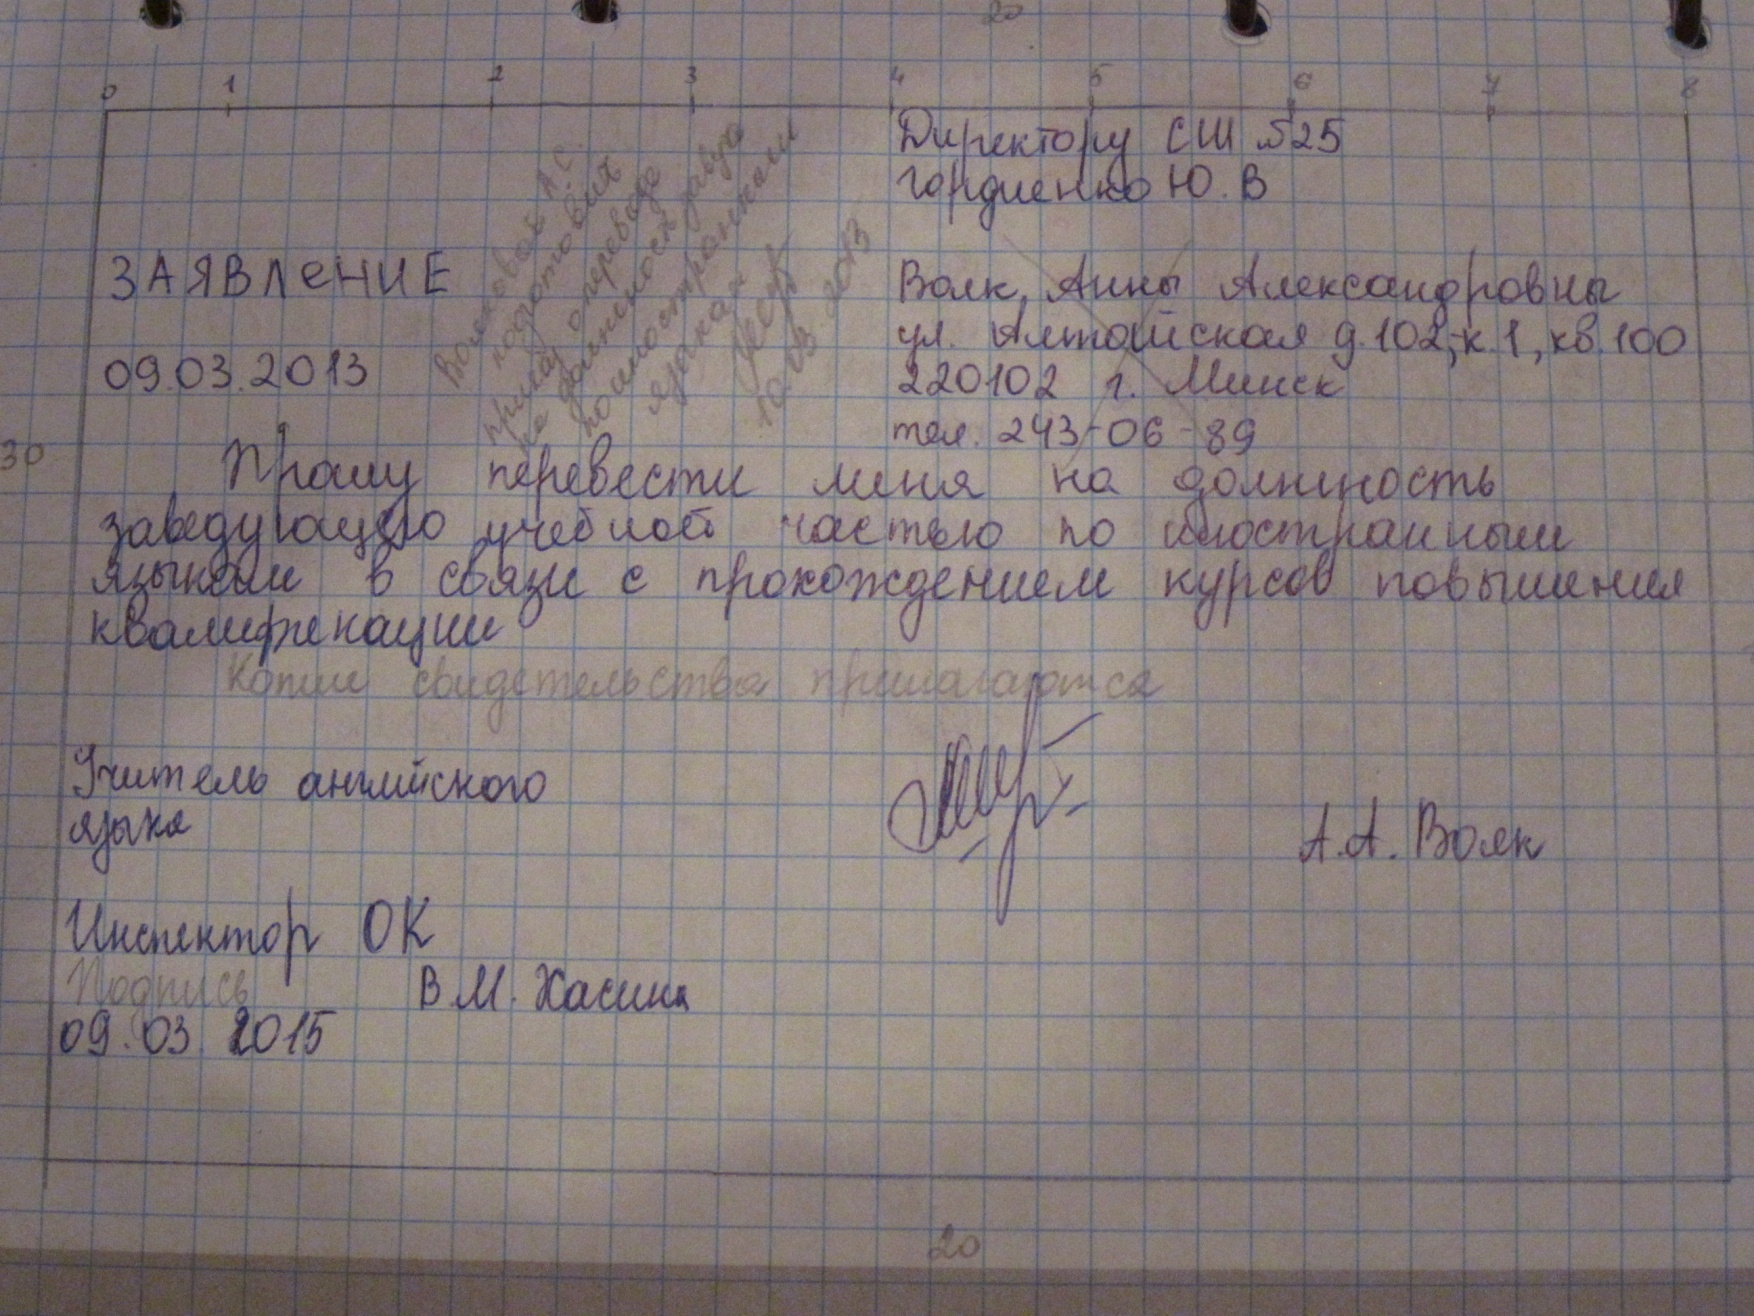 20
0 1 2 3 4 5 6 7 8
Директору СШ №25
Гордиенко Ю. В
ЗАЯВЛеНИЕ
09.03.2013
Волк, Анны Александровны
ул. Алтайская д.102, к.1, кв.100
220102 г. Минск
тел. 243-06-89
Волковой А.С.
подготовить
приказ о переводе
на должность завуча
по иностранным
языкам
10.03.2013
30
Прошу перевести меня на должность
заведующею учебной частью по иностранным
языкам в связи с прохождением курсов повышения
квалификации
Копии свидетельства прилагаются
Учитель английского
языка
А.А. Волк
Инспектор ОК
Подпись В.М. Хасина
09.03.2015
20